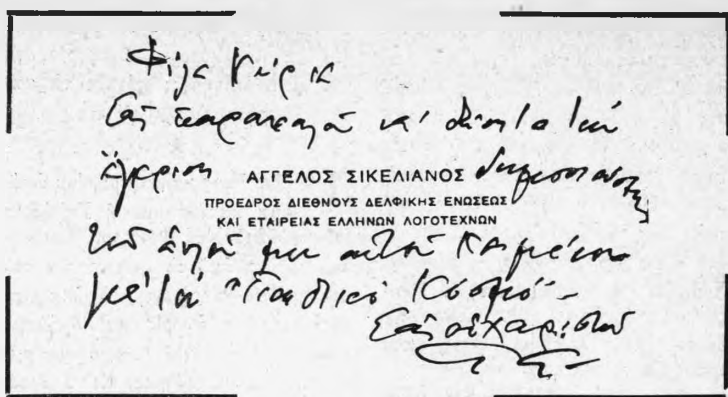 Φίλε Κύριε
Σᾶς παρακαλῶ νὰ δώσετε τὴν
ἔγκριση ΑΓΓΕΛΟΣ ΣΙΚΕΛΙΑΝΟΣ δημοσιεύσεως
ΠΡΟΕΔΡΟΣ ΔΙΕΘΝΟΥΣ ΔΕΛΦΙΚΗΣ ΕΝΩΣΕΩΣ
ΚΑΙ ΕΤΑΙΡΕΙΑΣ ΕΛΛΗΝΩΝ ΛΟΓΟΤΕΧΝΩΝ
τοῦ ἁπλοῦ μου αὐτοῦ κειμένου
γιὰ τὸν "Παιδικό Κόσμο" -
Σᾶς εὐχαριστῶ